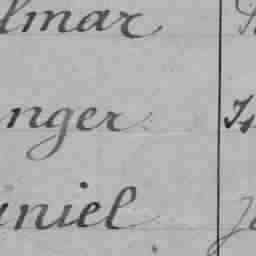 lmar
nger
iniel